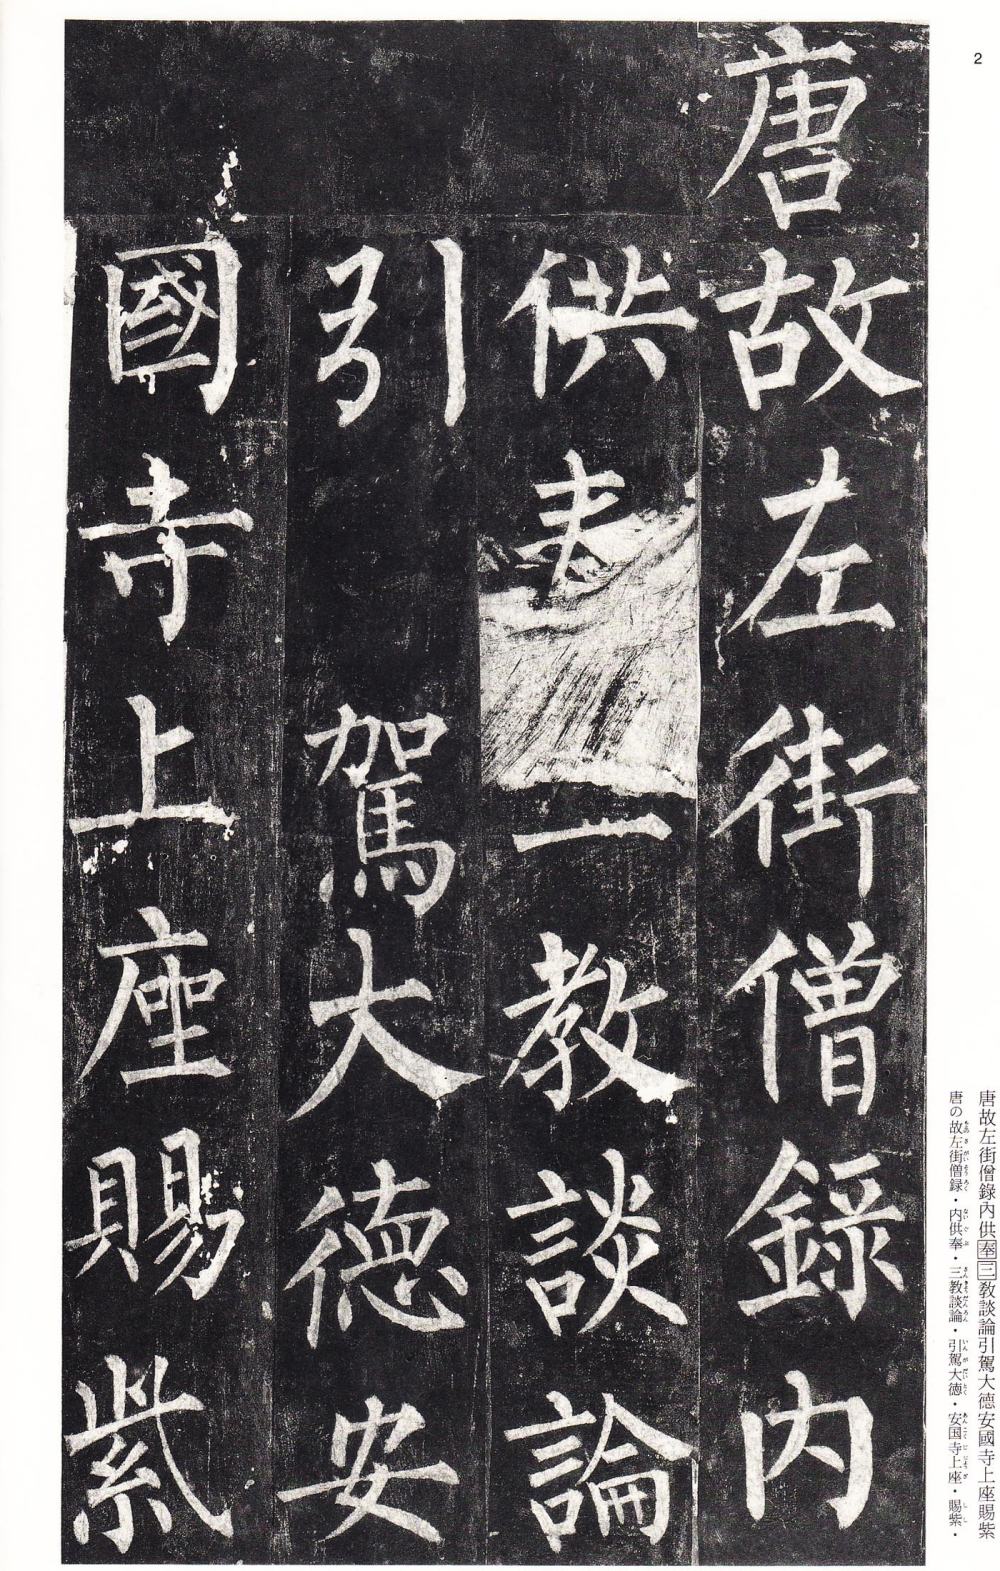 2
唐故左街僧錄內
供奉三教談論
引駕大德安
國寺上座賜紫
唐故左街僧錄內供奉三教談論引駕大德安國寺上座賜紫
唐の故左街僧録・内供奉・三教談論・引駕大徳・安国寺上座・賜紫・